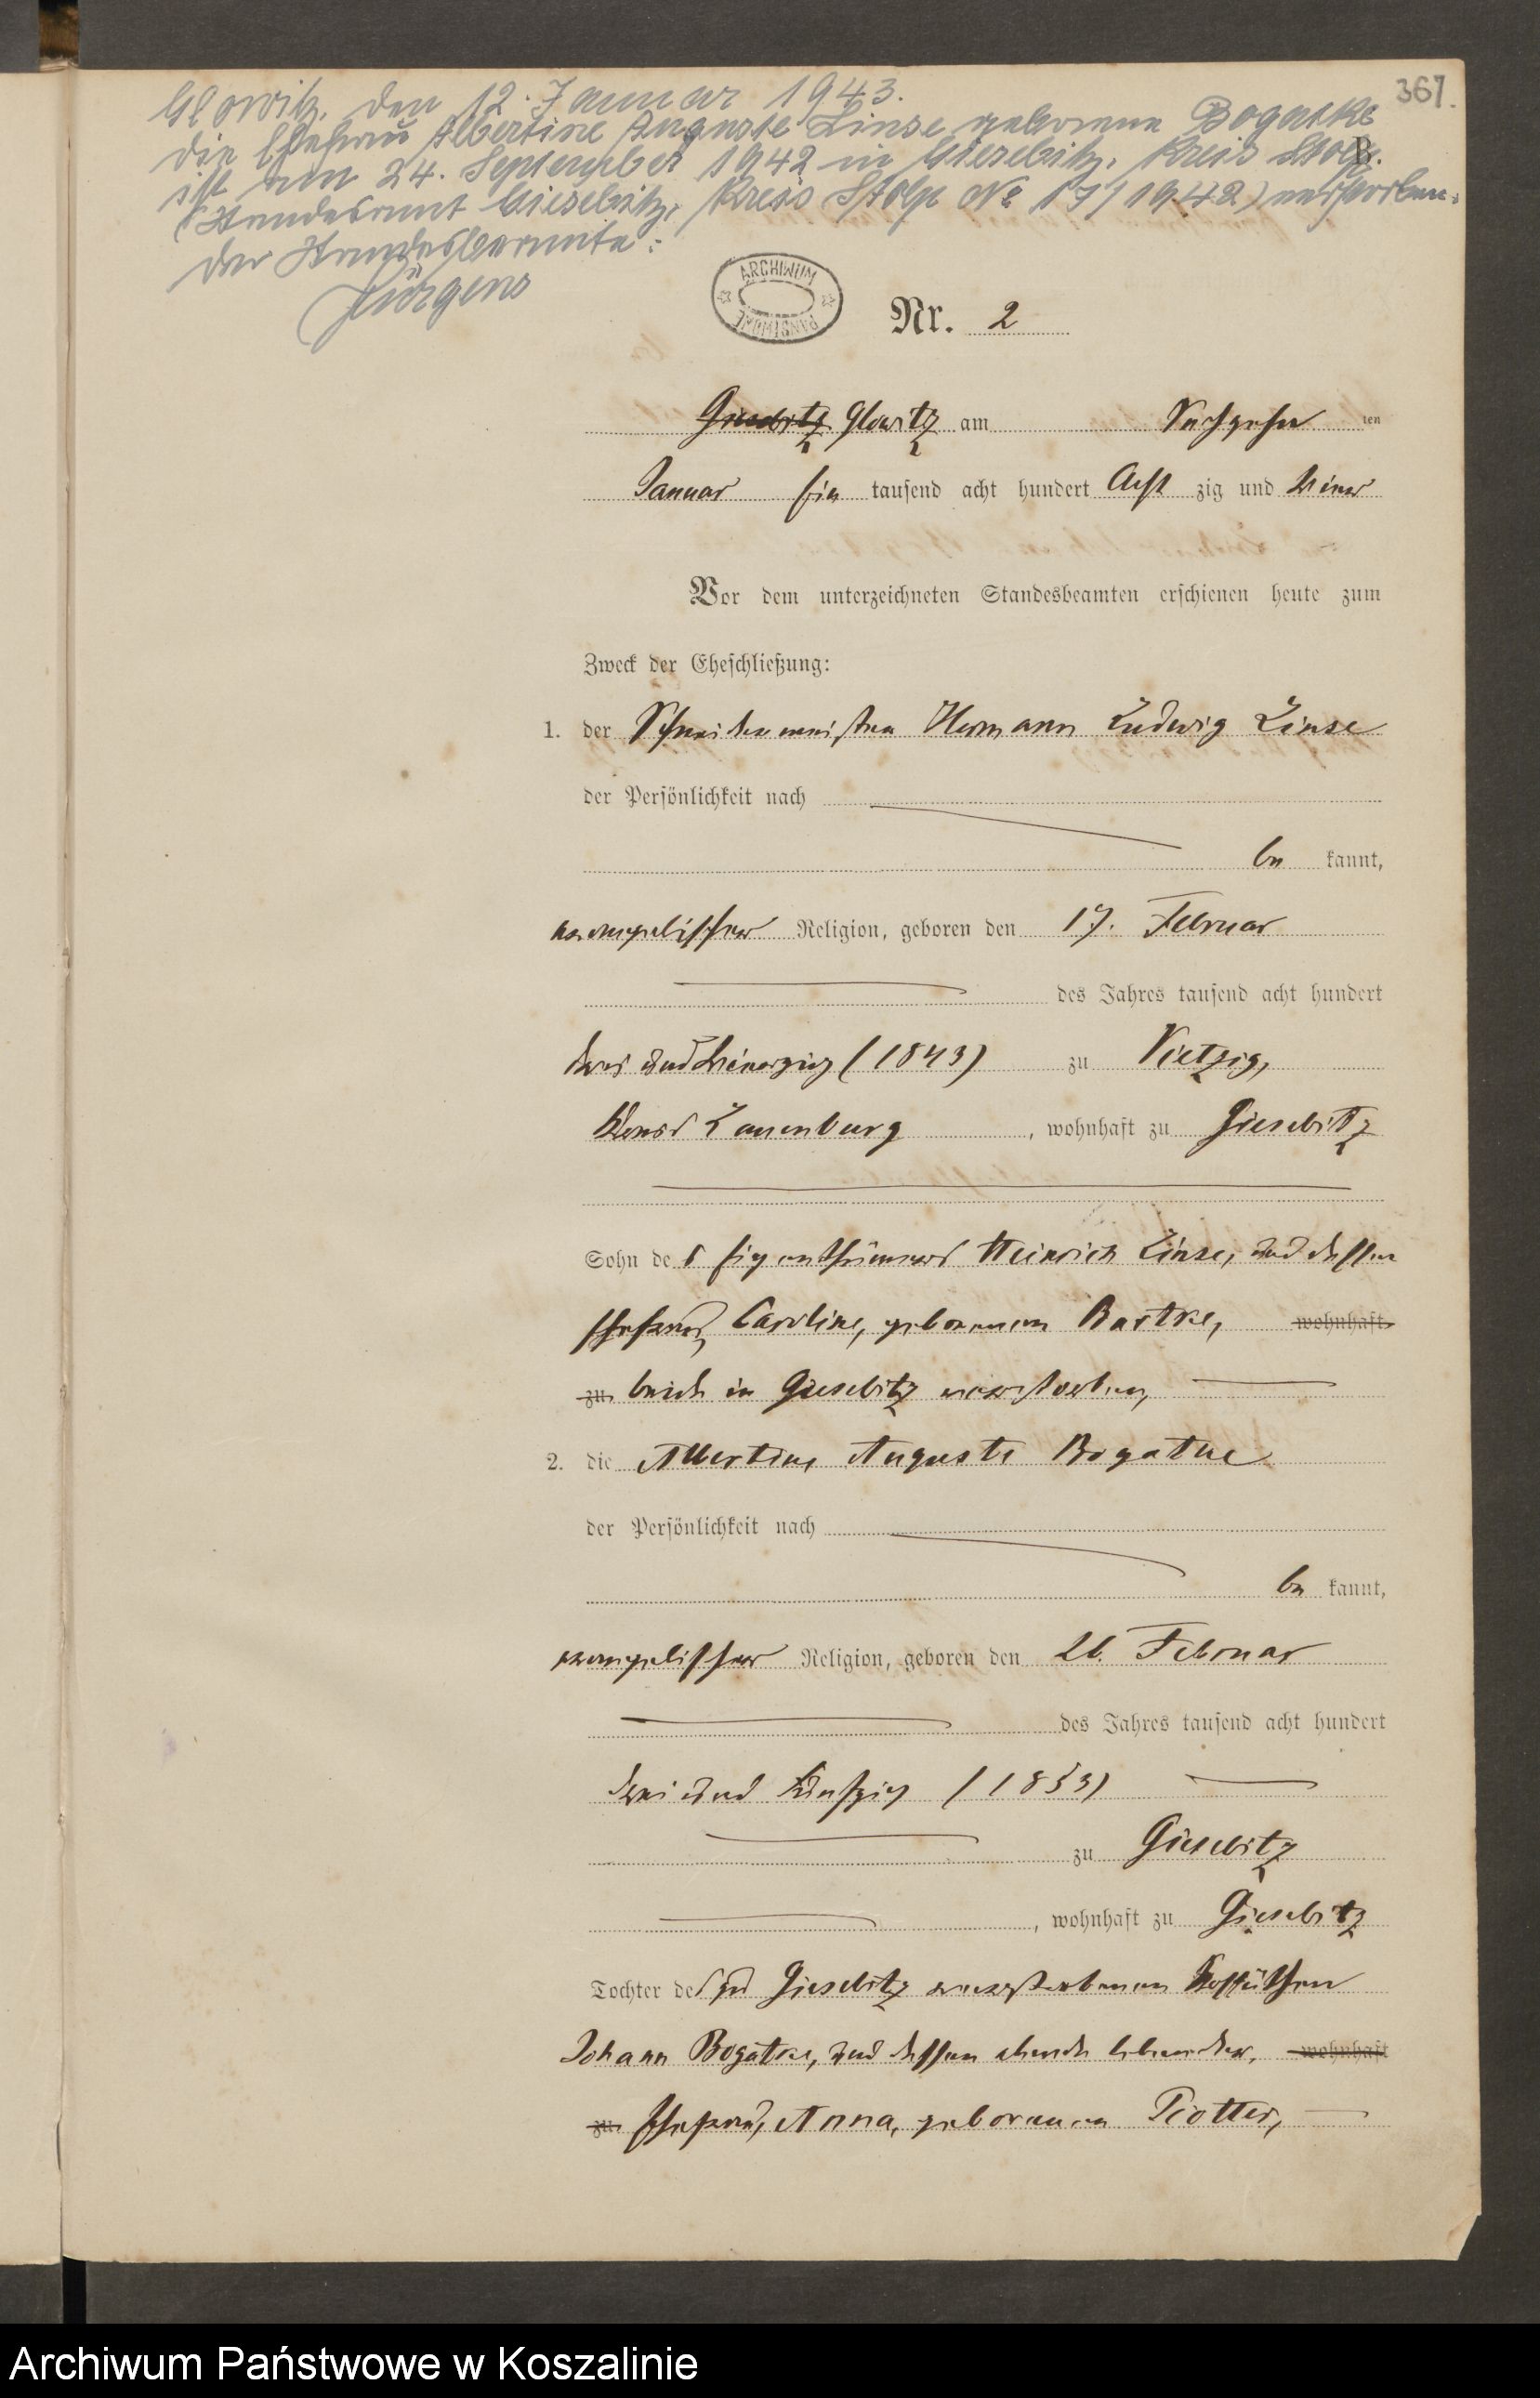 Glowitz, den 12. Januar 1943.
Die Ehefrau Albertine Auguste Linse geborene Bogatke
ist am 24. September 1942 in Giesebitz, Kreis Stolp
(Standesamt Giesebitz, Kreis Stolp No 17/1942) verstorben.
Der Standesbeamte:
Jürgens
367.
B.
ARCHIWUM PAŃSTWOWE
Nr. 2
Giesebitz Glowitz am Sechszehn ten
Januar Ein tausend acht hundert Acht zig und Vier
Vor dem unterzeichneten Standesbeamten erschienen heute zum
Zweck der Eheschließung:
1. der Schneidermeister Hermann Ludwig Linse
der Persönlichkeit nach
be kannt,
evangelischer Religion, geboren den 17. Februar
des Jahres tausend acht hundert
drei und Vierzig (1843) zu Vietzig,
Kreis Lauenburg, wohnhaft zu Giesebitz
Sohn des Eigenthümers Heinrich Linse, und dessen
Ehefrau, Caroline, geborenen Bartke, wohnhaft
zu beide in Giesebitz verstorben,
2. die Albertine Auguste Bogatke
der Persönlichkeit nach
be kannt,
evangelischer Religion, geboren den Februar
des Jahres tausend acht hundert
drei und Fünfzig (1853)
zu Giesebitz
, wohnhaft zu Giesebitz
Tochter des zu Giesebitz verstorbenen Kossäthen
Johann Bogatke, und dessen lebenden, wohnhaft
zu Ehefrau, Anna, geborenen Piotter,
Archiwum Państwowe w Koszalinie